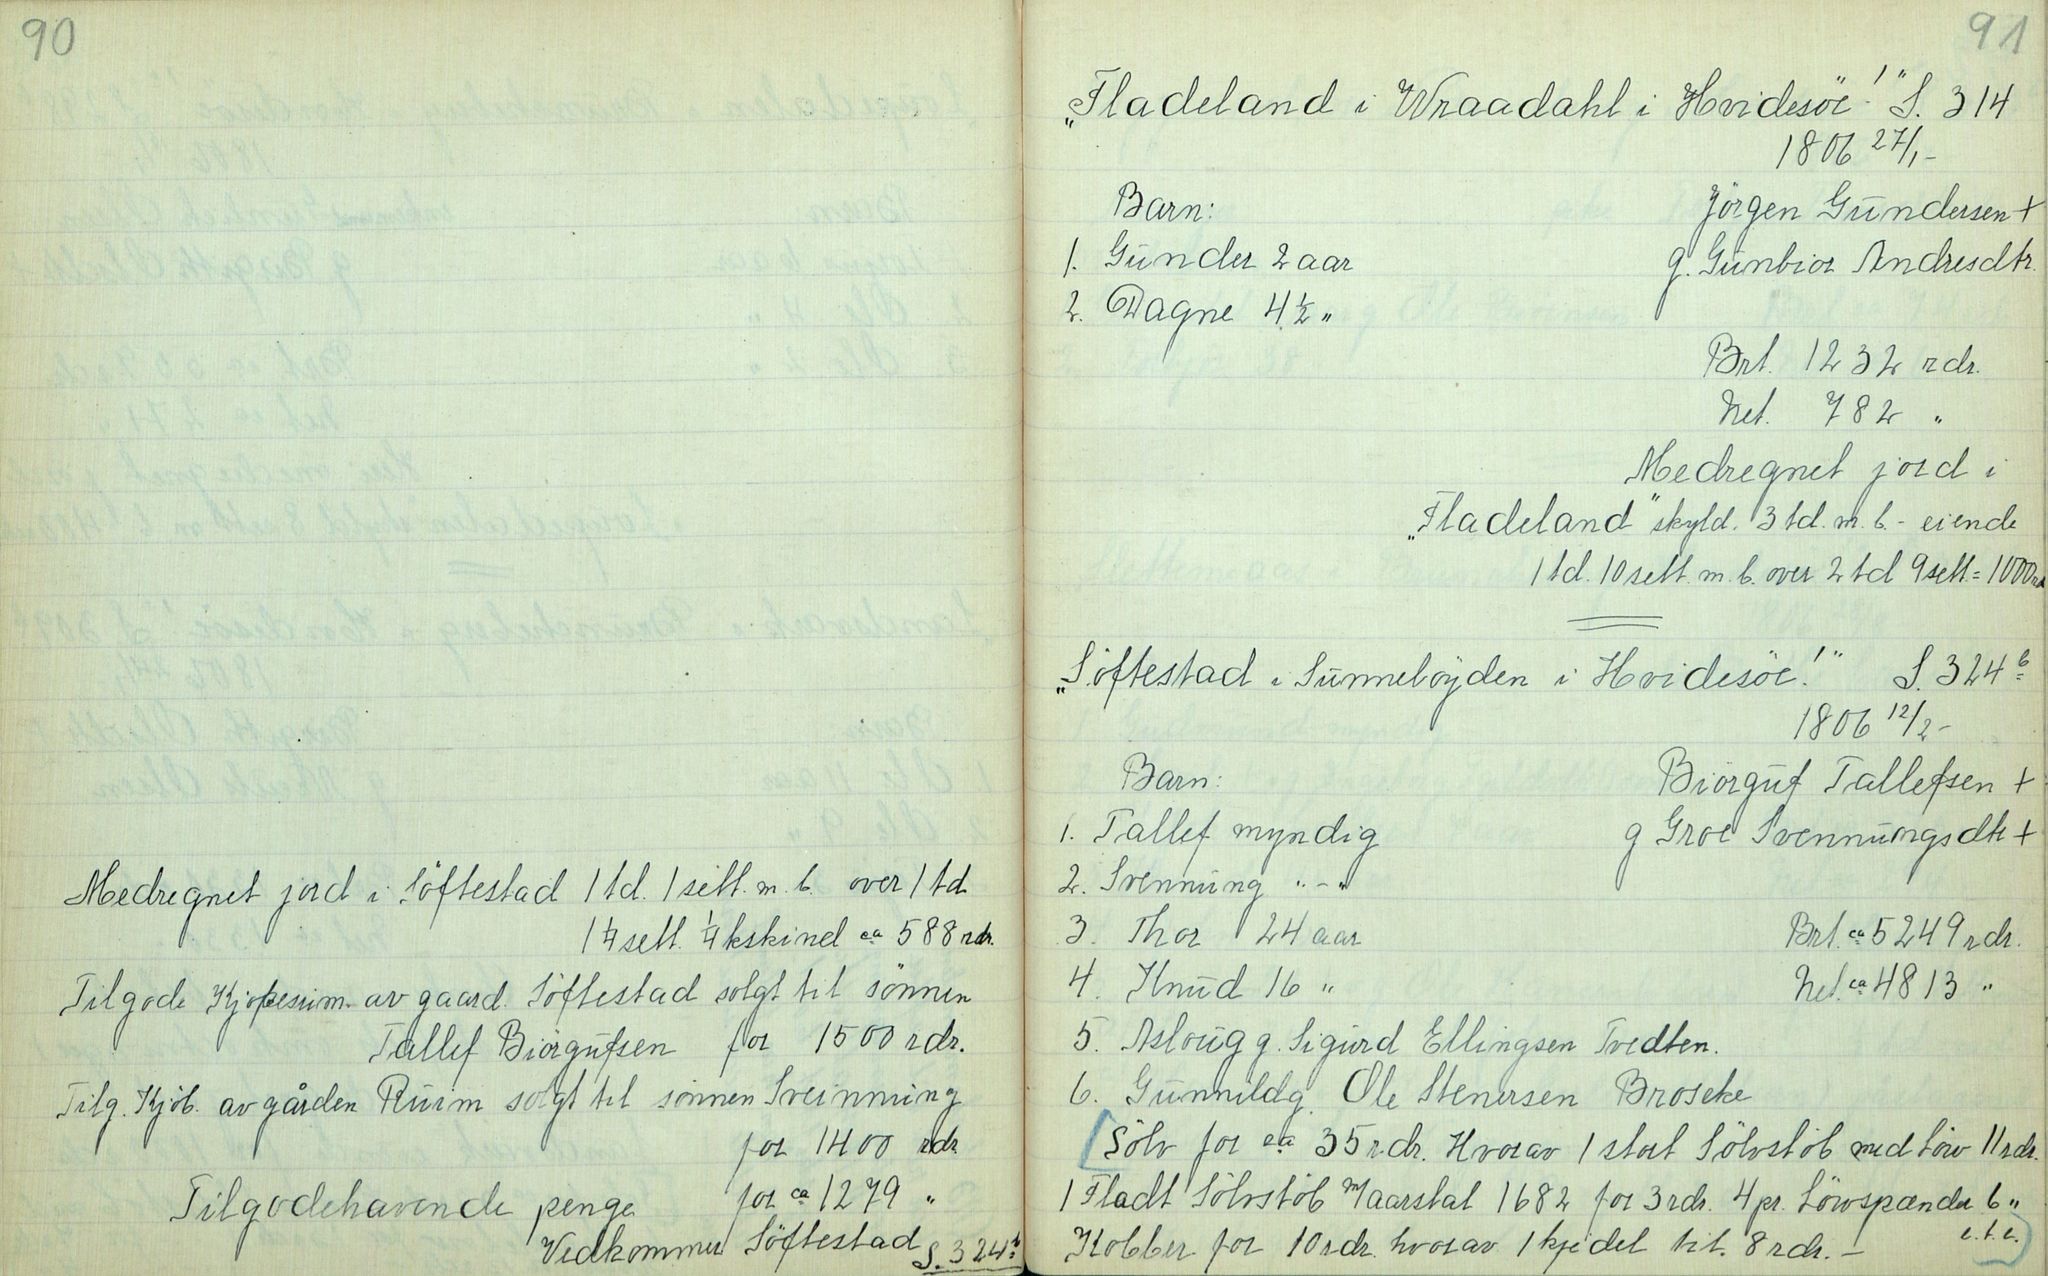 90
Medregnet jord i Söftestad 1 td. 1 sett. m. b. over 1 td
1 1/4 sett. 1/4 kskind ca 588 rdr.
Tilgode Kjøpesum. av gaard. Söftestad solgt til sönnen
Tallef Biörgufsen for 1500 rdr.
Tilg. Kjøb. av gården Ruim solgt til sönnen Sveinning
for 1400 rdr
Tilgodehavende penge for ca 1279 "
Vedkommer Söftestad S. 324 b
91
"Fladeland i Wraadahl i Hvidesöe!" S. 314
1806 27/1-
Barn: Jörgen Gundersen +
1. Gunder 2 aar g. Gunbior Andresdtr.
2. Dagne 4 1/2 "
Brt. 1232 rdr.
Net. 782 "
Medregnet jord i
"Fladeland" skyld. 3 td. m. b. - eiende
1 td. 10 sett. m. b. over 2 td 9 sett = 1000 rd
"Söftestad i Sunneböyden i Hvidesöe!" S. 324 b
1806 12/2-
Barn: Biörguf Tallefsen +
1. Tallef myndig g Groe Svennungsdtr +
2. Svennung "-"
3. Thor 24 aar Brt. ca 5249 rdr.
4. Knud 16 " Net. ca 4813 "
5. Asloug g. Sigurd Ellingsen Tvedten.
6. Gunnild g. Ole Stenersen Broseke
[Sölv for ca 35 rdr. Hvorav 1 stort Sölvstöb med Löv 11 rdr.
1 Fladt Sölvstöb m/aarstal 1682 for 3 rdr. 4 pr. Lövspænder 6 "
Kobber for 10 rdr. hvorav 1 kjedel til. 8 rdr. - e.t.c.)